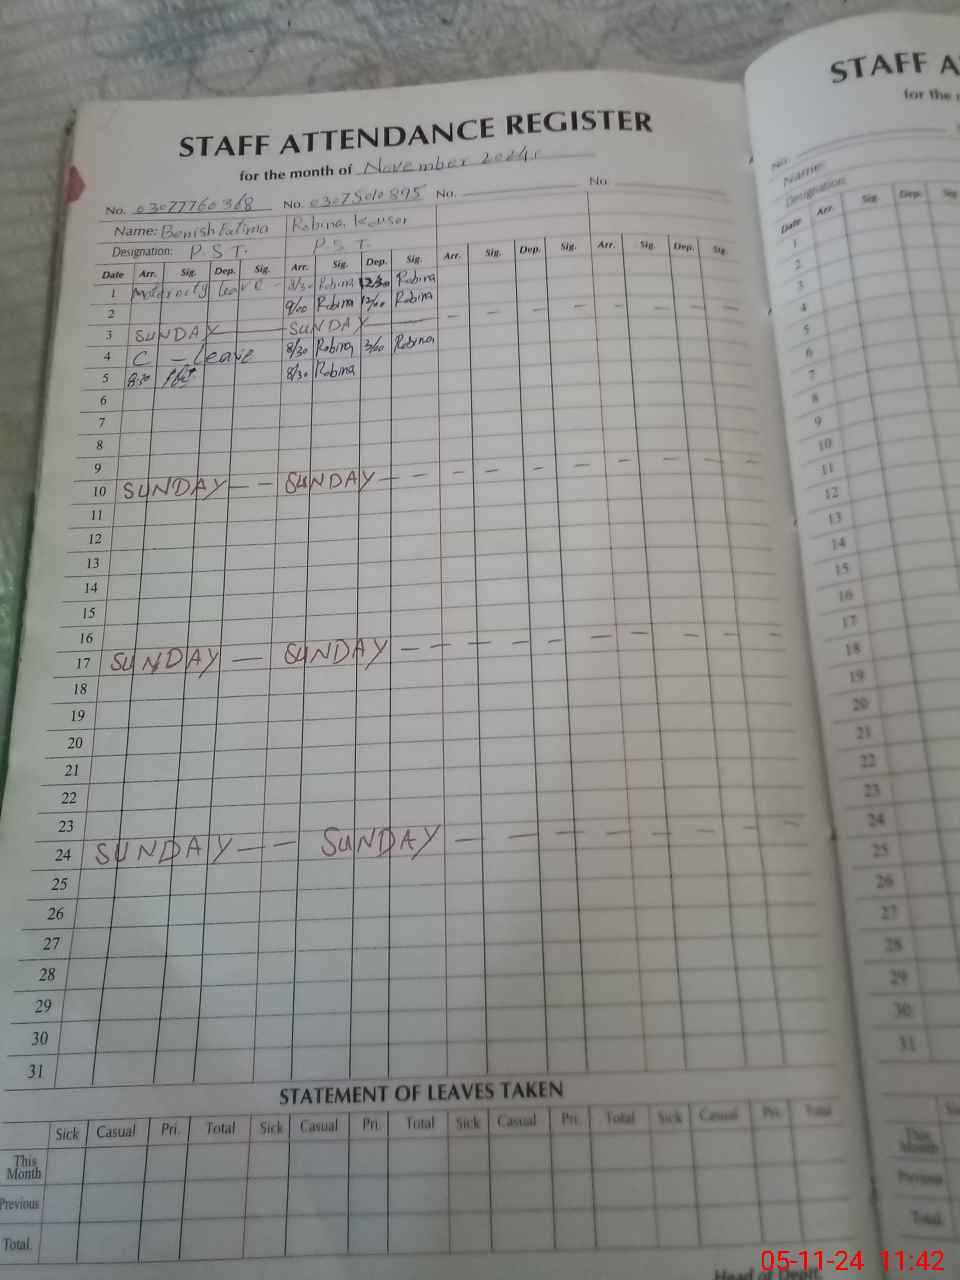 STAFF ATTENDANCE REGISTER
for the month of November 2024
No. 03077760368 No. 03075010895 No. No.
Name: Benish Fatima Robina Kousar
Designation: P.S.T. P.S.T.
Date Arr. Sig. Dep. Sig. Arr. Sig. Dep. Sig. Arr. Sig. Dep. Sig. Arr. Sig. Dep. Sig.
1 leave - 8/30 Robina 12/30 Robina
2 9/00 Robina 12/00 Robina
3 SUNDAY SUNDAY
4 C - Leave 8/30 Robina 2/00 Robina
5 8:30 8/30 Robina
6
7
8
9
10 SUNDAY SUNDAY
11
12
13
14
15
16
17 SUNDAY SUNDAY
18
19
20
21
22
23
24 SUNDAY SUNDAY
25
26
27
28
29
30
31
STATEMENT OF LEAVES TAKEN
Sick Casual Pri. Total Sick Casual Pri. Total Sick Casual Pri. Total Sick Casual Pri. Total
This Month
Previous
Total.
Head of Deptt.
STAFF A
for the
No.
Name:
Designation:
Date Arr. Sig. Dep.
1
2
3
4
5
6
7
8
9
10
11
12
13
14
15
16
17
18
19
20
21
22
23
24
25
26
27
28
29
30
31
This Month
Previous
Total
05-11-24 11:42